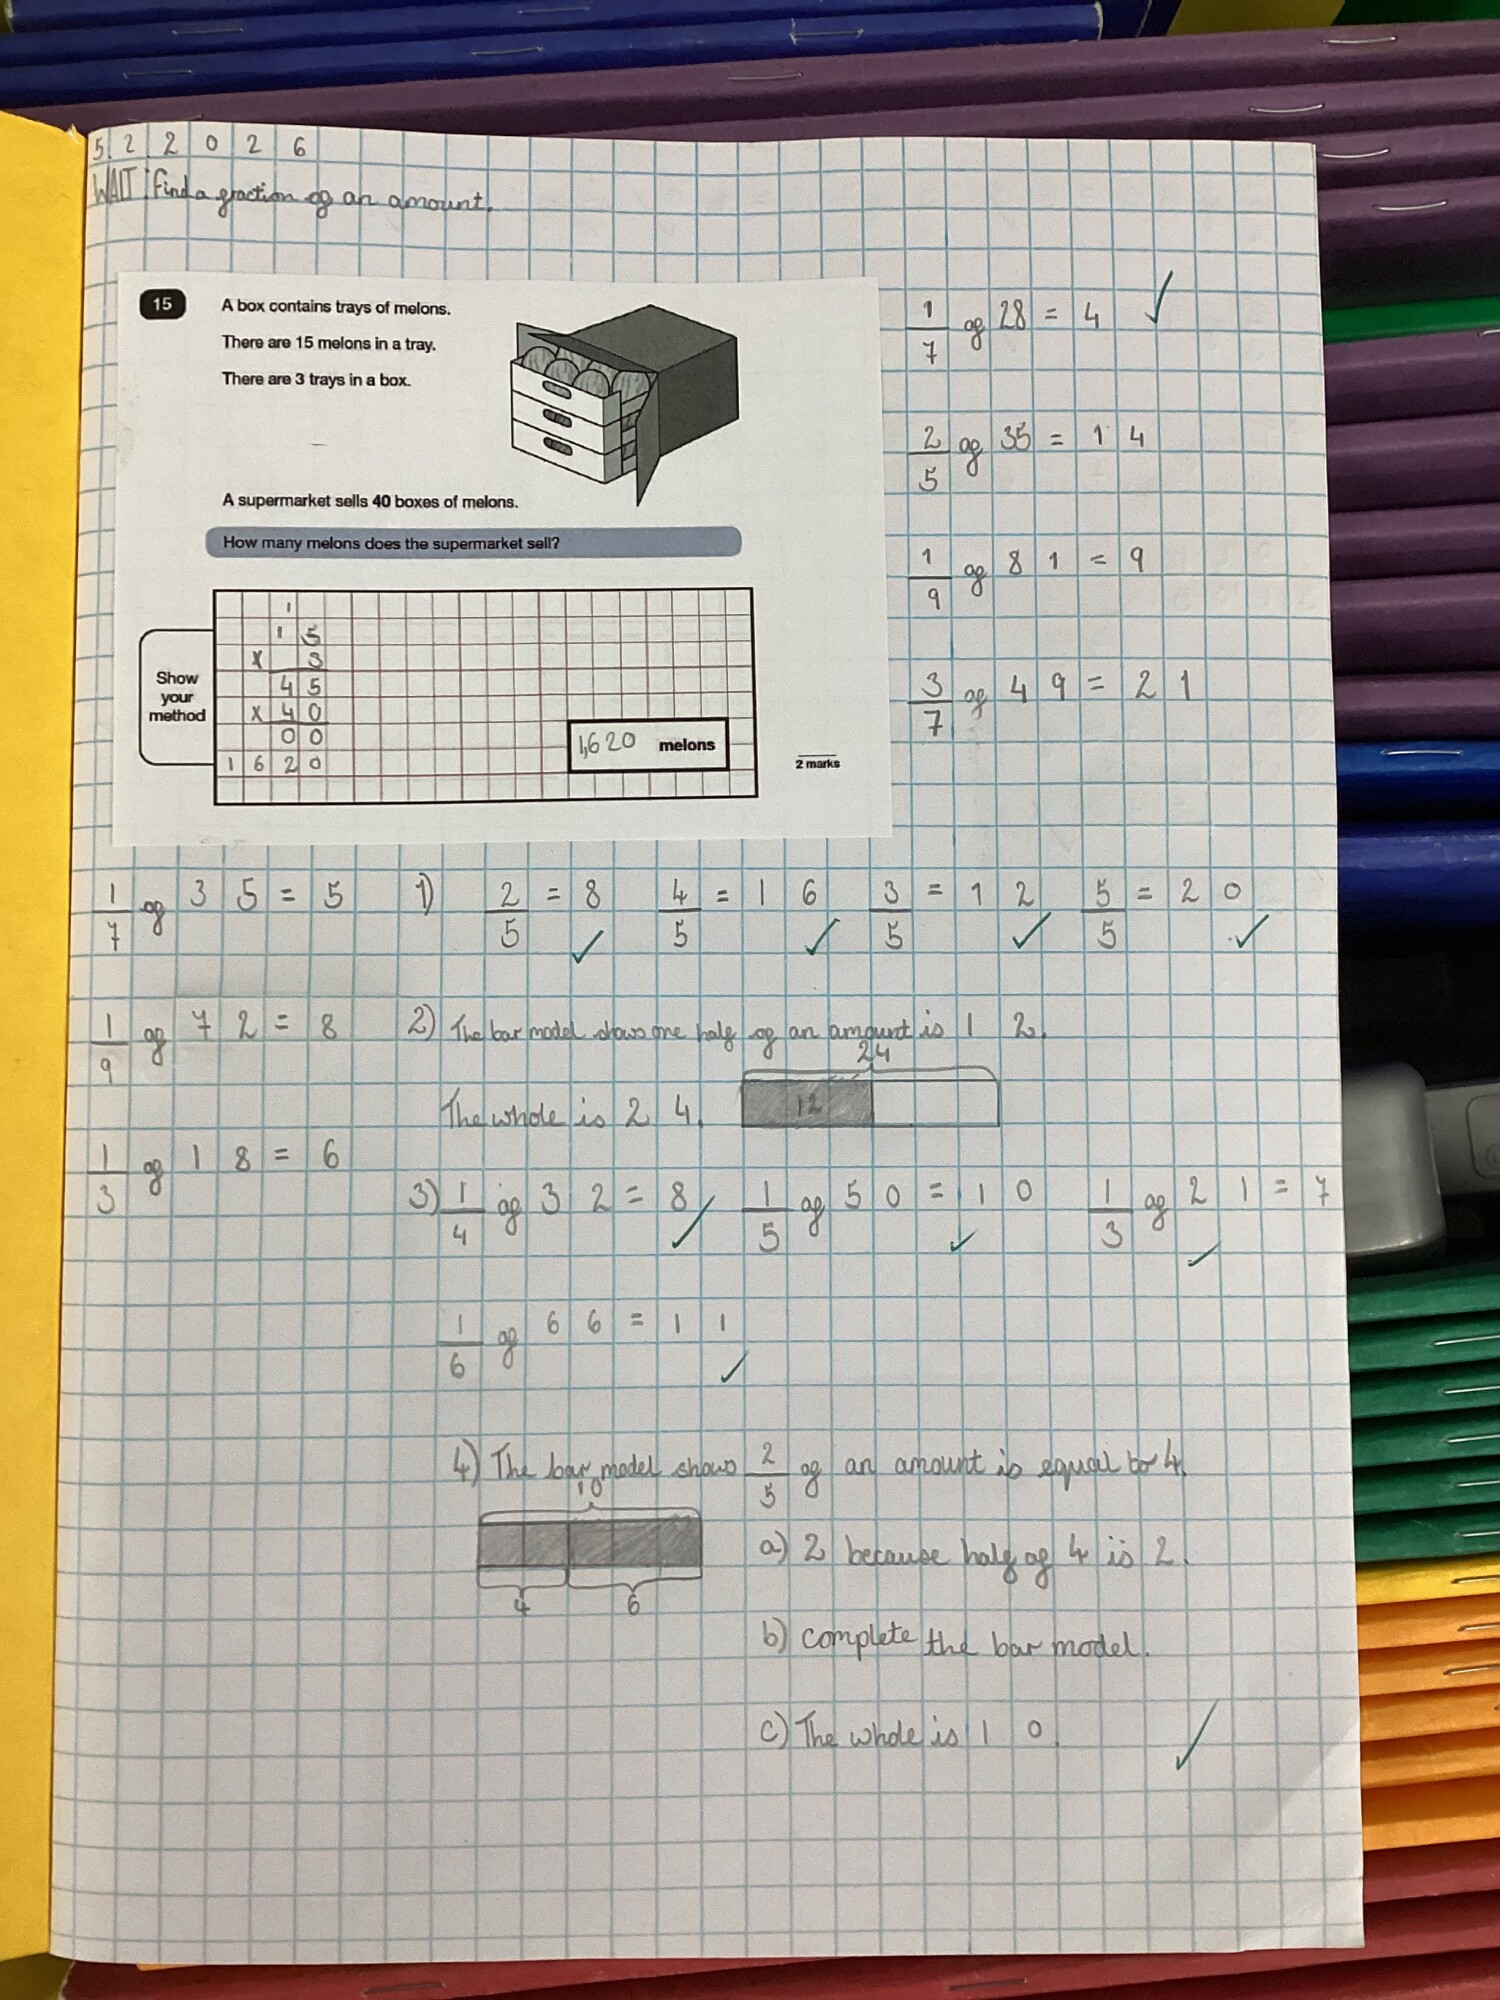 5.2.2026
WALT: Find a fraction of an amount.
15
A box contains trays of melons.
There are 15 melons in a tray.
There are 3 trays in a box.
A supermarket sells 40 boxes of melons.
How many melons does the supermarket sell?
Show
your
method
1
15
x 3
45
x 40
00
1620
1,620 melons
2 marks
1/7 of 28 = 4
2/5 of 35 = 14
1/9 of 81 = 9
3/7 of 49 = 21
1/7 of 35 = 5
1/9 of 72 = 8
1/3 of 18 = 6
1) 2/5 = 8 4/5 = 16 3/5 = 12 5/5 = 20
2) The bar model shows one half of an amount is 12.
24
The whole is 24. 12
3) 1/4 of 32 = 8 1/5 of 50 = 10 1/3 of 21 = 7
1/6 of 66 = 11
4) The bar model shows 2/5 of an amount is equal to 4.
10
4 6
a) 2 because half of 4 is 2.
b) complete the bar model.
c) The whole is 10.